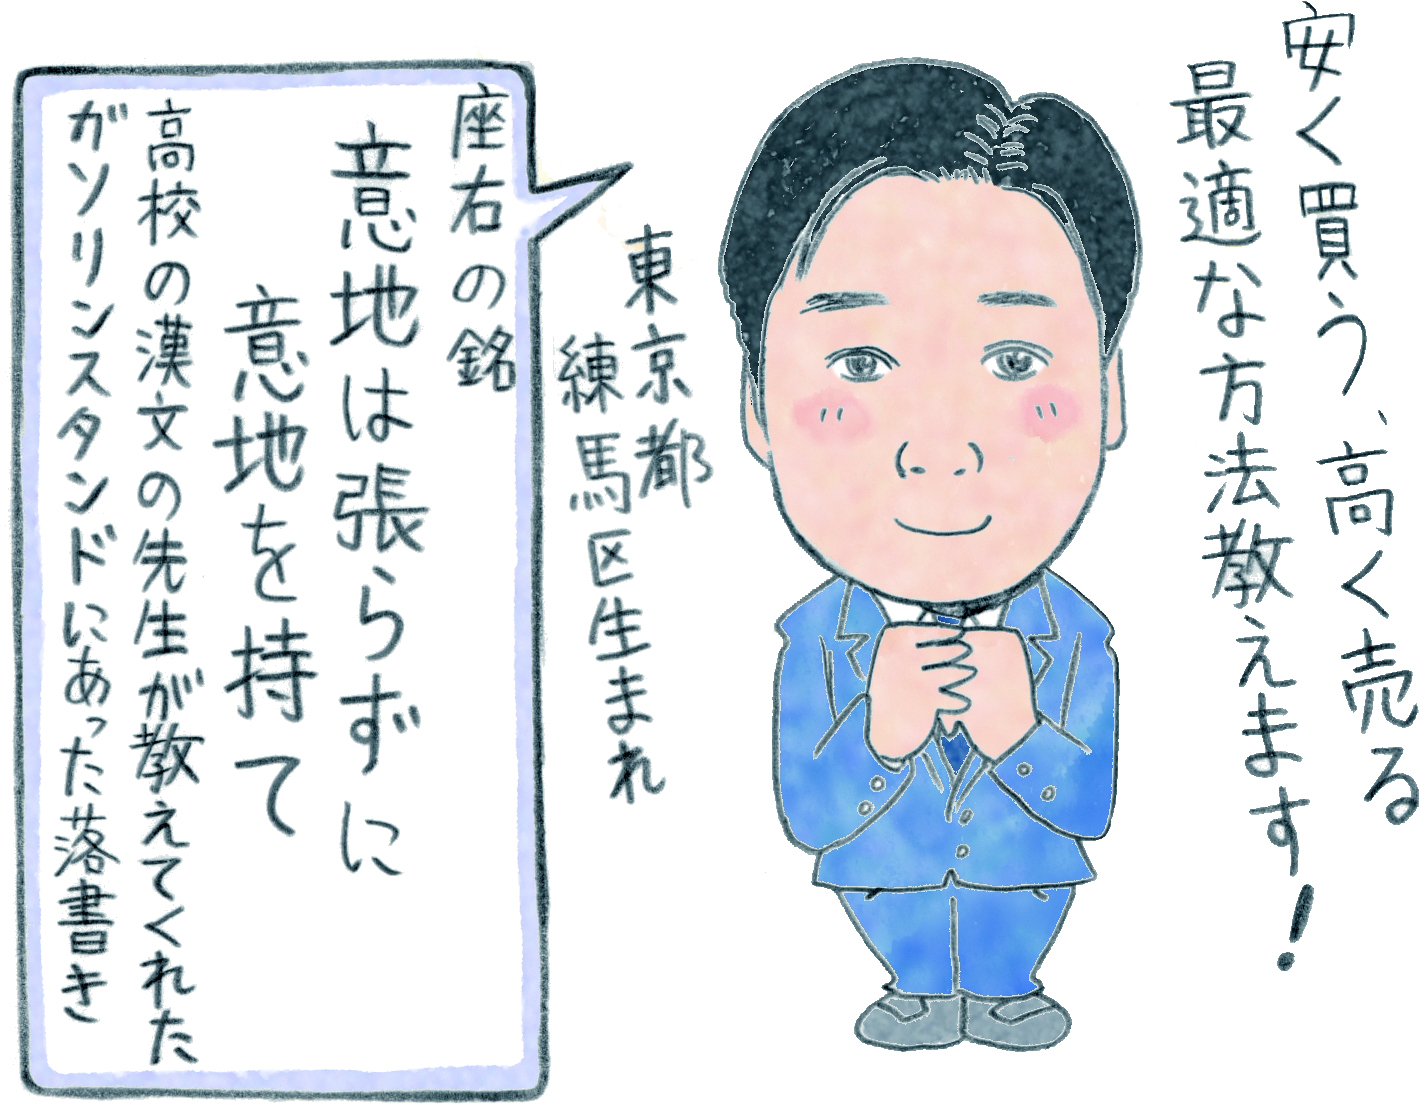 安く買う、高く売る
最適な方法教えます！
東京都
練馬区生まれ
座右の銘
意地は張らずに
意地を持て
高校の漢文の先生が教えてくれた
ガソリンスタンドにあった落書き